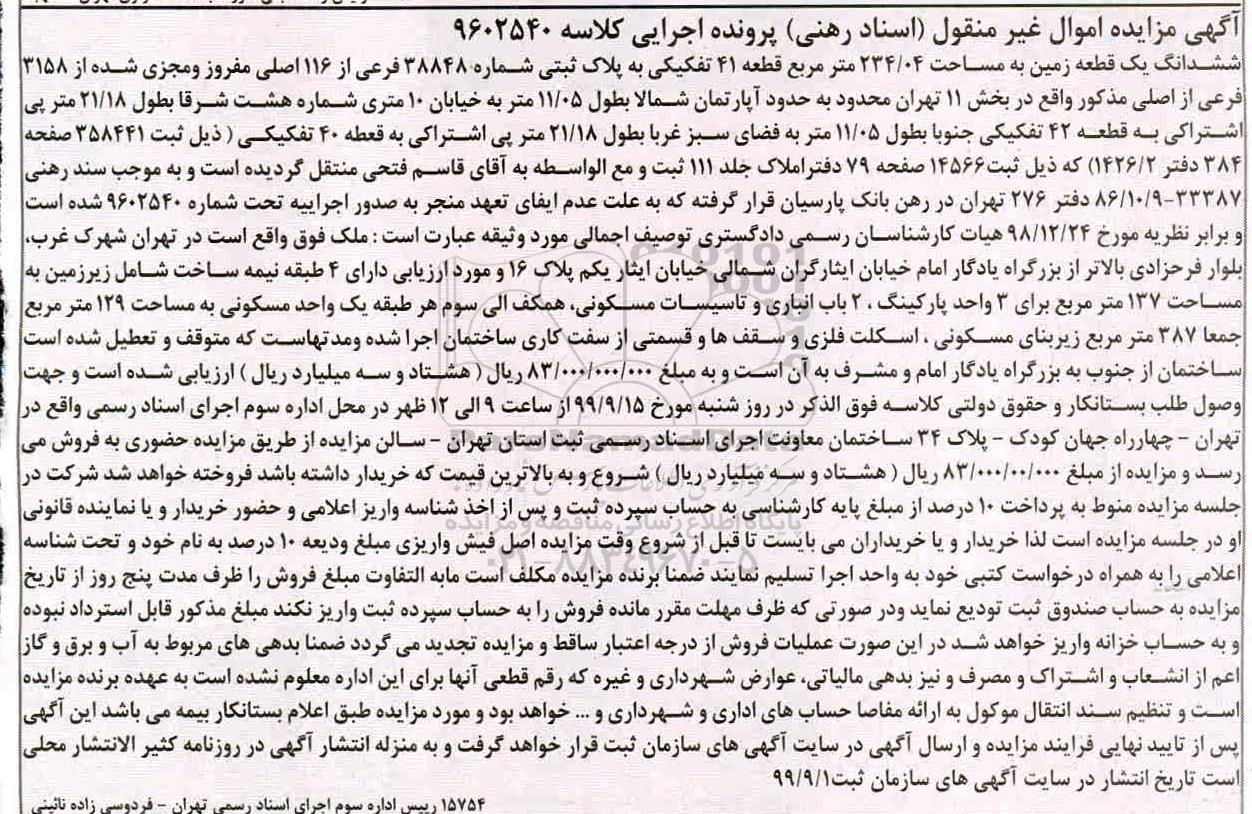 آگهی مزایده اموال غیر منقول (اسناد رهنی) پرونده اجرایی کلاسه ۹۶۰۲۵۴۰
ششدانگ یک قطعه زمین به مساحت ۲۳۴/۰۴ متر مربع قطعه ۴۱ تفکیکی به پلاک ثبتی شماره ۳۸۸۴۸ فرعی از ۱۱۶ اصلی مفروز ومجزی شده از ۳۱۵۸
فرعی از اصلی مذکور واقع در بخش ۱۱ تهران محدود به حدود آپارتمان شمالا بطول ۱۱/۰۵ متر به خیابان ۱۰ متری شماره هشت شرقا بطول ۲۱/۱۸ متر پی
اشتراکی به قطعه ۴۲ تفکیکی جنوبا بطول ۱۱/۰۵ متر به فضای سبز غربا بطول ۲۱/۱۸ متر پی اشتراکی به قعطه ۴۰ تفکیکی ( ذیل ثبت ۳۵۸۴۴۱ صفحه
۳۸۴ دفتر ۱۴۲۶/۲) که ذیل ثبت۱۴۵۶۶ صفحه ۷۹ دفتراملاک جلد ۱۱۱ ثبت و مع الواسطه به آقای قاسم فتحی منتقل گردیده است و به موجب سند رهنی
۳۳۳۸۷-۸۶/۱۰/۹ دفتر ۲۷۶ تهران در رهن بانک پارسیان قرار گرفته که به علت عدم ایفای تعهد منجر به صدور اجراییه تحت شماره ۹۶۰۲۵۴۰ شده است
و برابر نظریه مورخ ۹۸/۱۲/۲۴ هیات کارشناسان رسمی دادگستری توصیف اجمالی مورد وثیقه عبارت است : ملک فوق واقع است در تهران شهرک غرب،
بلوار فرحزادی بالاتر از بزرگراه یادگار امام خیابان ایثارگران شمالی خیابان ایثار یکم پلاک ۱۶ و مورد ارزیابی دارای ۴ طبقه نیمه ساخت شامل زیرزمین به
مساحت ۱۳۷ متر مربع برای ۳ واحد پارکینگ ، ۲ باب انباری و تاسیسات مسکونی، همکف الی سوم هر طبقه یک واحد مسکونی به مساحت ۱۲۹ متر مربع
جمعا ۳۸۷ متر مربع زیربنای مسکونی ، اسکلت فلزی و سقف ها و قسمتی از سفت کاری ساختمان اجرا شده ومدتهاست که متوقف و تعطیل شده است
ساختمان از جنوب به بزرگراه یادگار امام و مشرف به آن است و به مبلغ ۸۳/۰۰۰/۰۰۰/۰۰۰ ریال ( هشتاد و سه میلیارد ریال ) ارزیابی شده است و جهت
وصول طلب بستانکار و حقوق دولتی کلاسه فوق الذکر در روز شنبه مورخ ۹۹/۹/۱۵ از ساعت ۹ الی ۱۲ ظهر در محل اداره سوم اجرای اسناد رسمی واقع در
تهران - چهارراه جهان کودک - پلاک ۳۴ ساختمان معاونت اجرای اسناد رسمی ثبت استان تهران - سالن مزایده از طریق مزایده حضوری به فروش می
رسد و مزایده از مبلغ ۸۳/۰۰۰/۰۰/۰۰۰ ریال ( هشتاد و سه میلیارد ریال ) شروع و به بالاترین قیمت که خریدار داشته باشد فروخته خواهد شد شرکت در
جلسه مزایده منوط به پرداخت ۱۰ درصد از مبلغ پایه کارشناسی به حساب سپرده ثبت و پس از اخذ شناسه واریز اعلامی و حضور خریدار و یا نماینده قانونی
او در جلسه مزایده است لذا خریدار و یا خریداران می بایست تا قبل از شروع وقت مزایده اصل فیش واریزی مبلغ ودیعه ۱۰ درصد به نام خود و تحت شناسه
اعلامی را به همراه درخواست کتبی خود به واحد اجرا تسلیم نمایند ضمنا برنده مزایده مکلف است مابه التفاوت مبلغ فروش را ظرف مدت پنج روز از تاریخ
مزایده به حساب صندوق ثبت تودیع نماید ودر صورتی که ظرف مهلت مقرر مانده فروش را به حساب سپرده ثبت واریز نکند مبلغ مذکور قابل استرداد نبوده
و به حساب خزانه واریز خواهد شد در این صورت عملیات فروش از درجه اعتبار ساقط و مزایده تجدید می گردد ضمنا بدهی های مربوط به آب و برق و گاز
اعم از انشعاب و اشتراک و مصرف و نیز بدهی مالیاتی، عوارض شهرداری و غیره که رقم قطعی آنها برای این اداره معلوم نشده است به عهده برنده مزایده
است و تنظیم سند انتقال موکول به ارائه مفاصا حساب های اداری و شهرداری و ... خواهد بود و مورد مزایده طبق اعلام بستانکار بیمه می باشد این آگهی
پس از تایید نهایی فرایند مزایده و ارسال آگهی در سایت آگهی های سازمان ثبت قرار خواهد گرفت و به منزله انتشار آگهی در روزنامه کثیر الانتشار محلی
است تاریخ انتشار در سایت آگهی های سازمان ثبت۹۹/۹/۱
۱۵۷۵۴ رییس اداره سوم اجرای اسناد رسمی تهران - فردوسی زاده نائینی